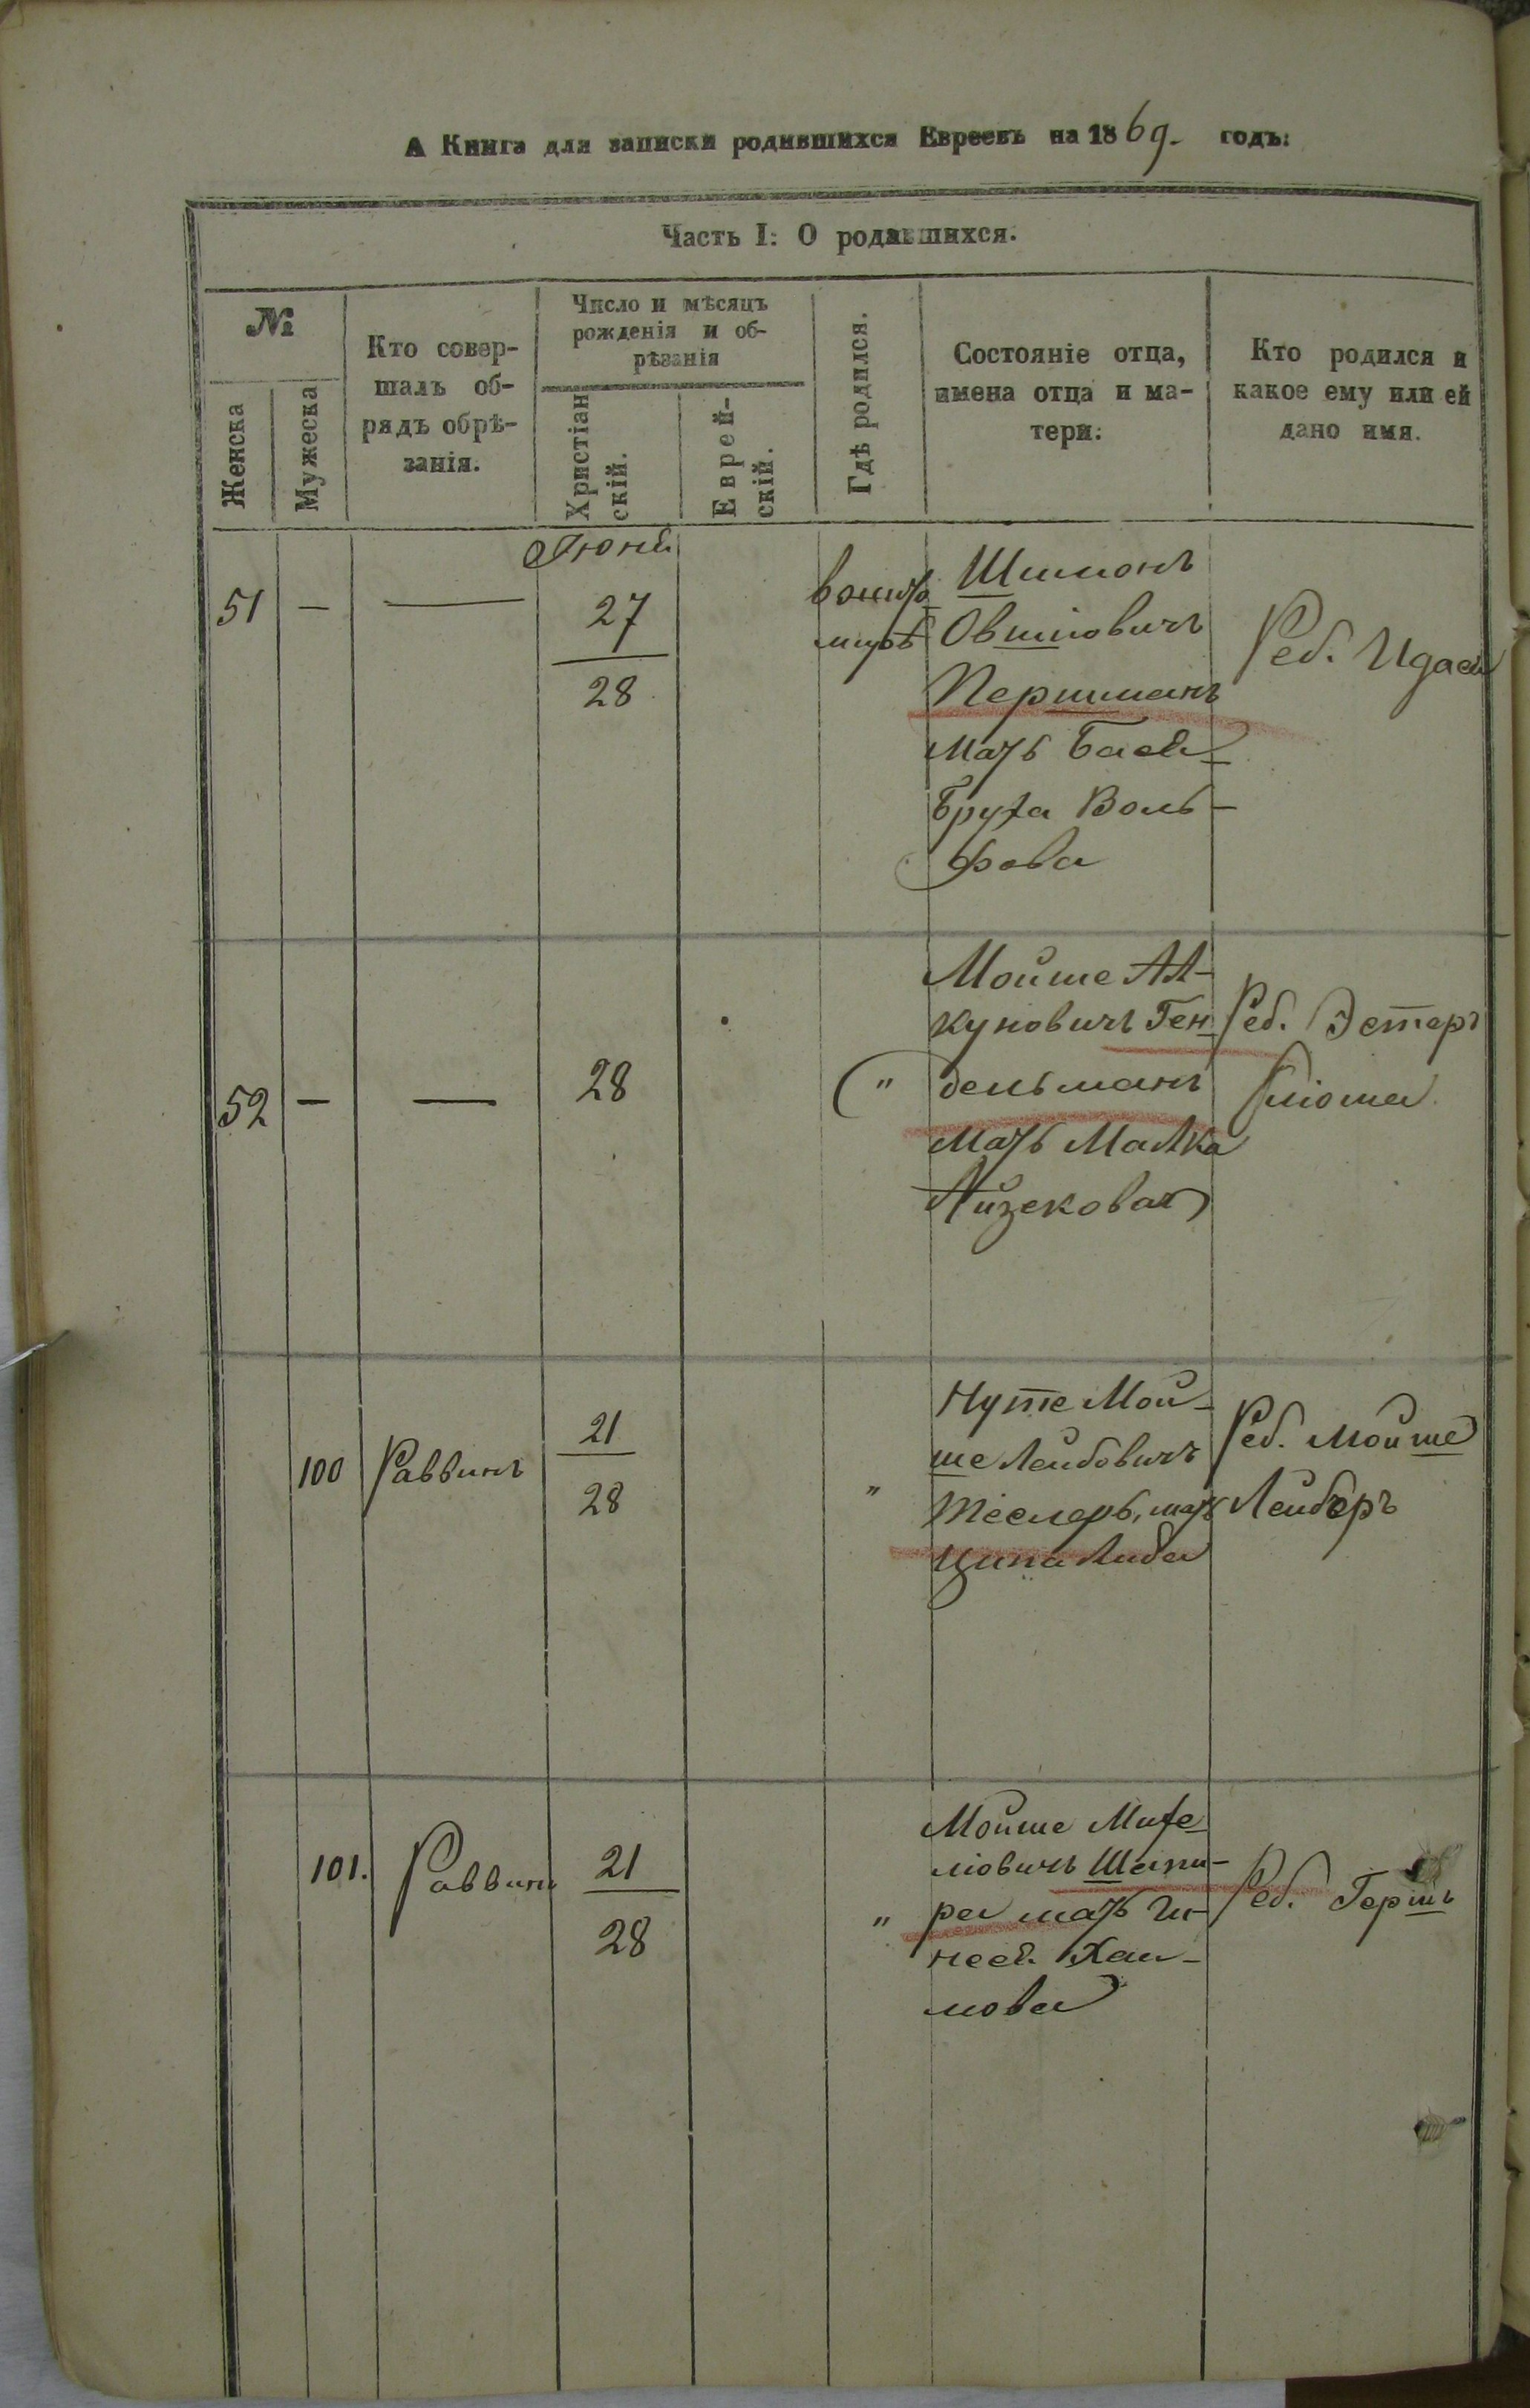 А Книга для записки родившихся Евреевъ на 1869. годъ:
Часть I: О родившихся.
№
Женска
Мужеска
Кто совер-
шалъ об-
рядъ обрѣ-
занія.
Число и мѣсяцъ
рожденія и об-
рѣзанія
Христіан
скій.
Еврей-
скій.
Гдѣ родился.
Состояніе отца,
имена отца и ма-
тери.
Кто родился и
какое ему или ей
дано имя.
Іюнь
51 — —
27
28
Шимонъ
Овшіовичъ
Першманъ
мать Бася
Бруха Воль-
фова
Реб. Идая
52 — —
28
"
Мойше Ал-
куновичъ Ген-
дельманъ
мать Малка
Айзекова
Реб. Эстеръ
100 Раввинъ
21
28
"
Нуте Мой-
ше Лейбовичъ
Теслеръ, мать
Ципа Либа
Реб. Мойше
Лейбъ
101. Раввинъ
21
28
"
Мойше Михе-
ліовичъ Шапи-
ра мать
Хаи-
мова
Реб. Гершъ